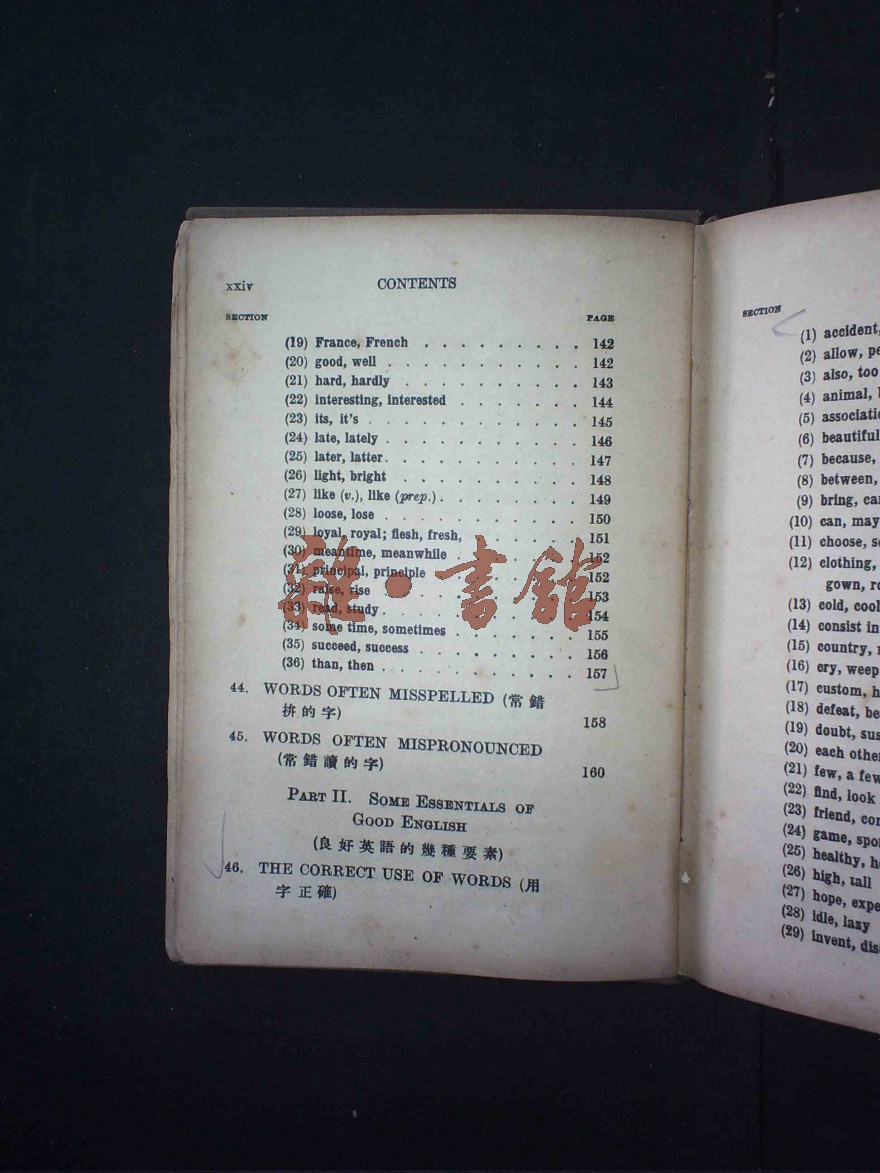 xxiv CONTENTS
SECTION PAGE
(19) France, French . . . . . . . . . 142
(20) good, well . . . . . . . . . . . 142
(21) hard, hardly . . . . . . . . . . 143
(22) interesting, interested . . . . . . . 144
(23) its, it's . . . . . . . . . . . . 145
(24) late, lately . . . . . . . . . . . 146
(25) later, latter . . . . . . . . . . . 147
(26) light, bright . . . . . . . . . . 148
(27) like (v.), like (prep.) . . . . . . . . 149
(28) loose, lose . . . . . . . . . . . 150
(29) loyal, royal; flesh, fresh, . . . . . . 151
(30) meantime, meanwhile . . . . . . . 152
(31) principal, principle . . . . . . . . 152
(32) raise, rise . . . . . . . . . . . 153
(33) read, study . . . . . . . . . . . 154
(34) some time, sometimes . . . . . . . 155
(35) succeed, success . . . . . . . . . 156
(36) than, then . . . . . . . . . . . 157
44. WORDS OFTEN MISSPELLED (常錯
拚的字) 158
45. WORDS OFTEN MISPRONOUNCED
(常錯讀的字) 160
PART II. SOME ESSENTIALS OF
GOOD ENGLISH
(良好英語的幾種要素)
46. THE CORRECT USE OF WORDS (用
字正確)
雜·書館
SECTION
(1) accident,
(2) allow,
(3) also, too
(4) animal,
(5)
(6) beautiful
(7) because,
(8) between,
(9) bring,
(10) can, may
(11) choose,
(12) clothing,
gown,
(13) cold, cool
(14) consist in
(15) country,
(16) cry, weep
(17) custom,
(18) defeat,
(19) doubt,
(20) each other
(21) few, a few
(22) find, look
(23) friend,
(24) game,
(25) healthy,
(26) high, tall
(27) hope,
(28) idle, lazy
(29) invent,